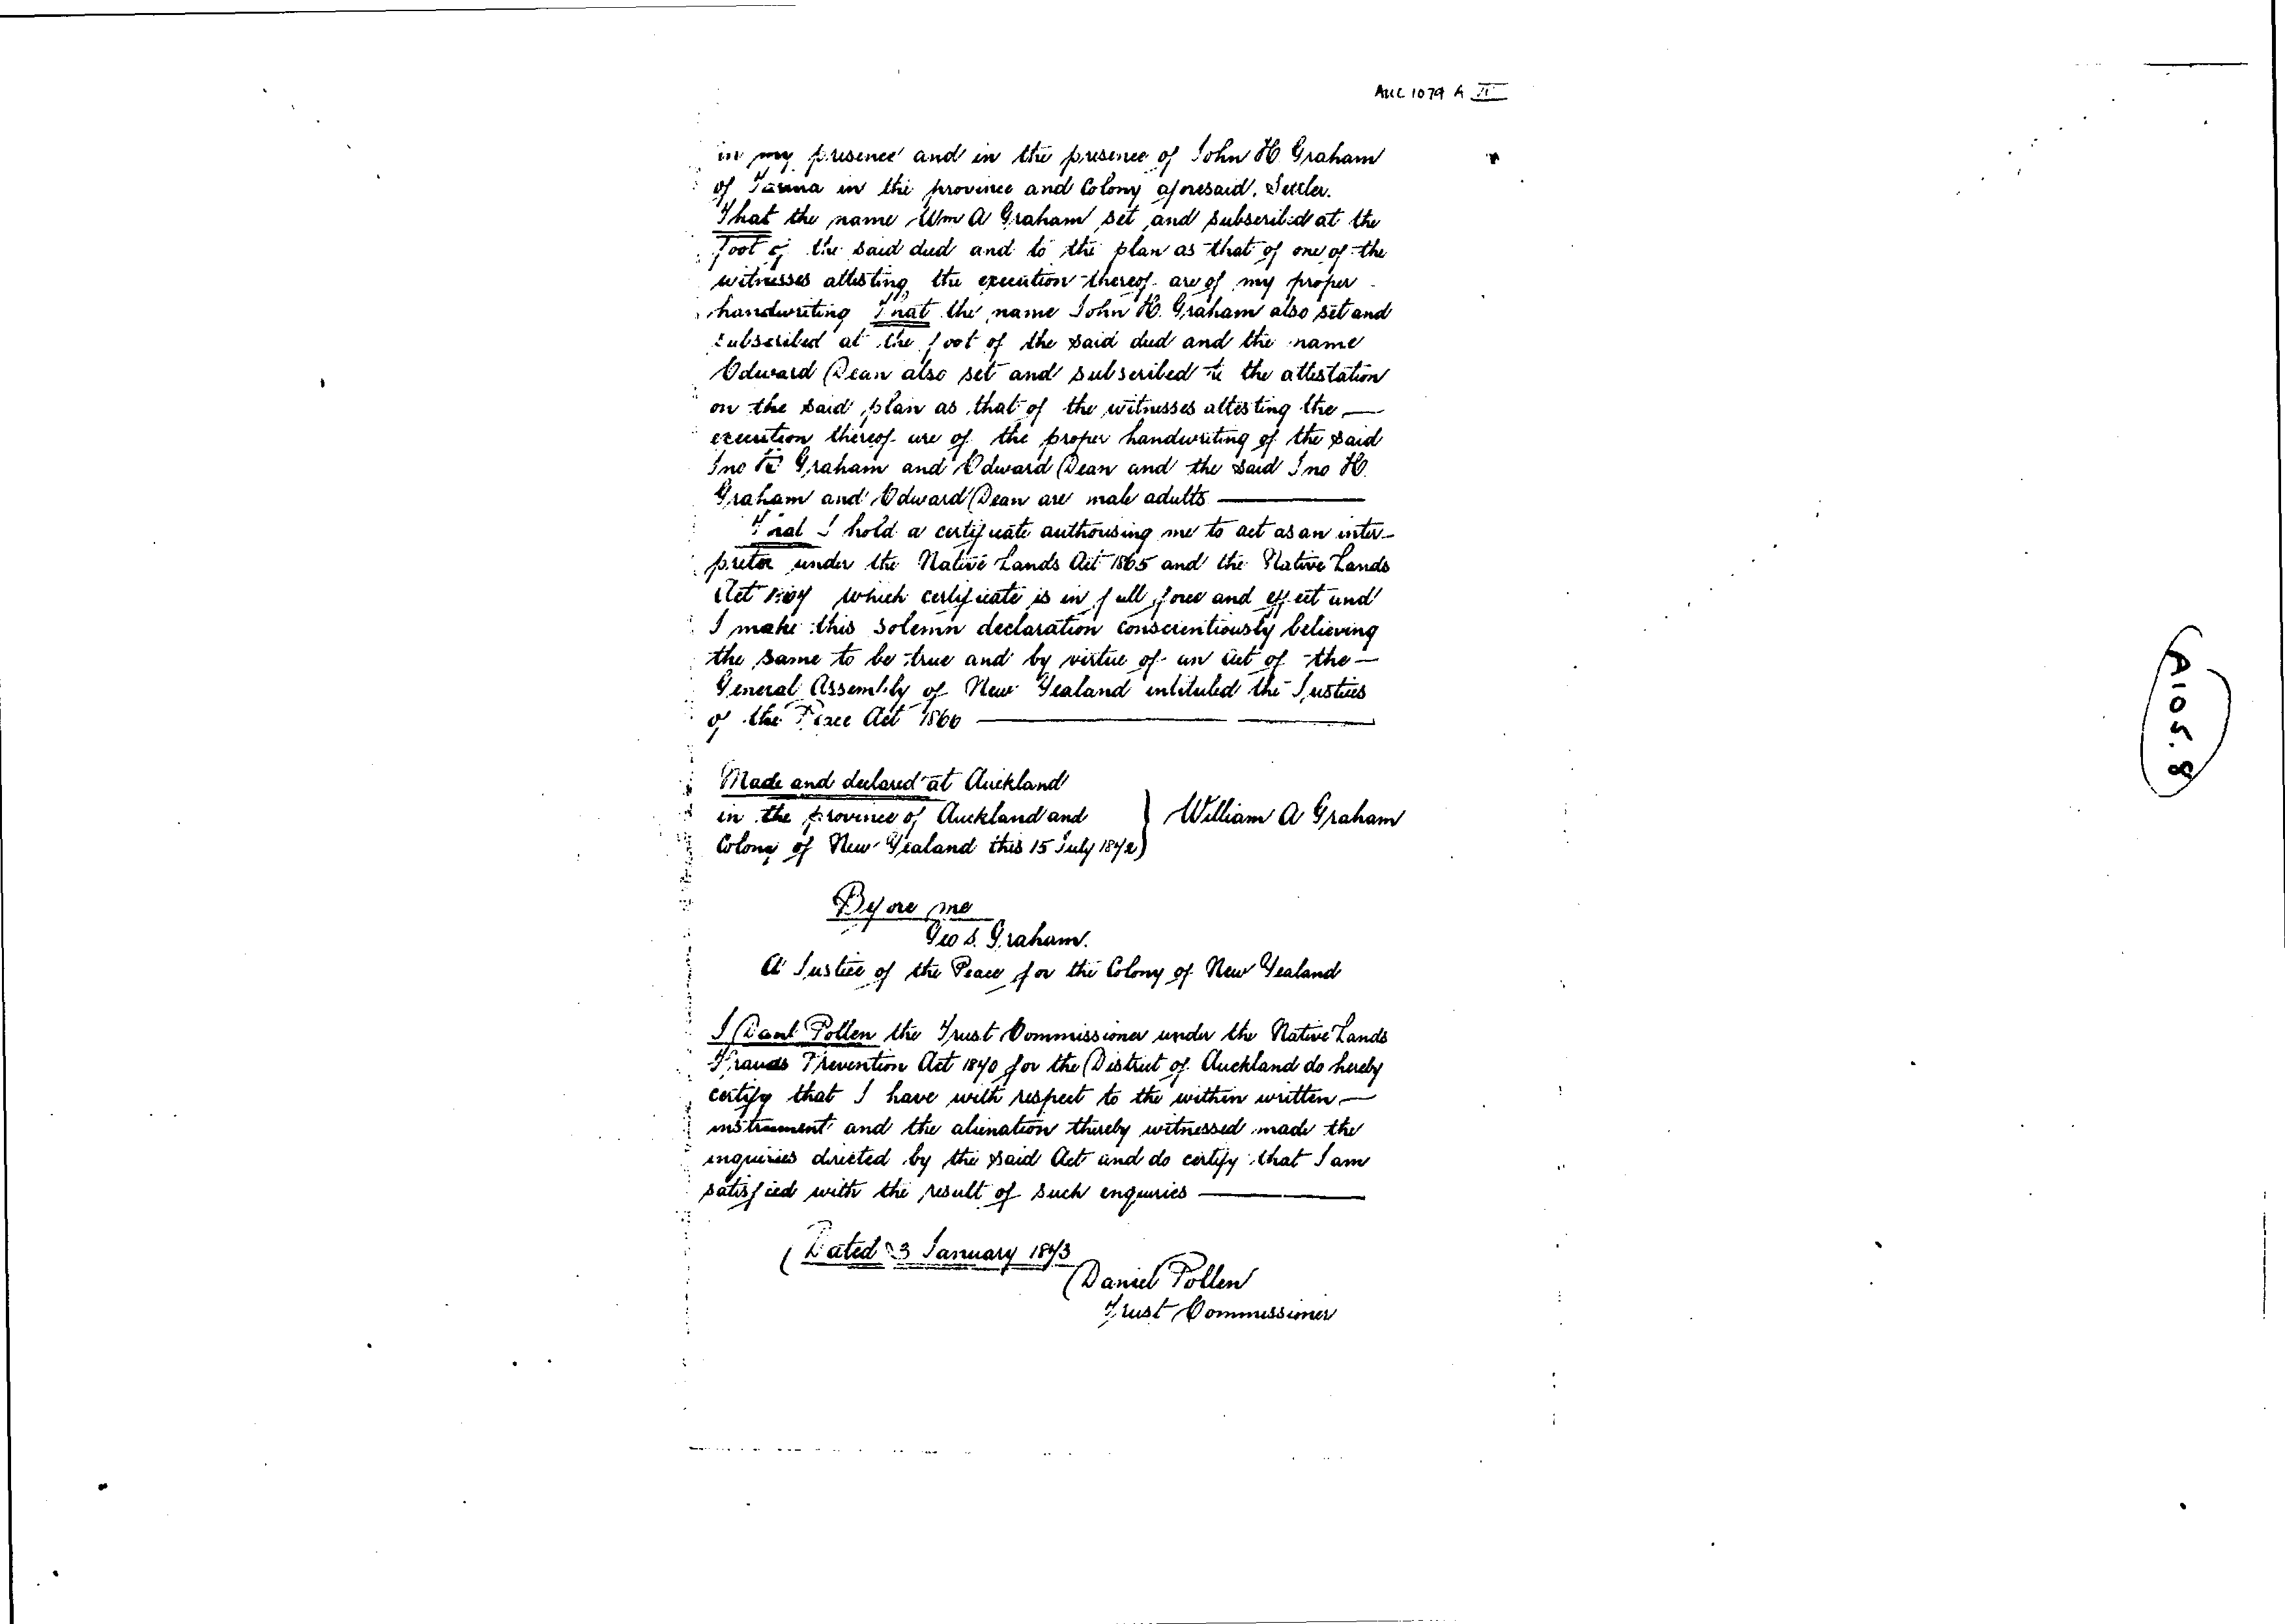 AUC 1079 A II
in my presence and in the presence of John H. Graham
of in the province and Colony aforesaid. Settler.
That the name Wm A Graham set and subscribed at the
foot of the said deed and to the plan as that of one of the
witnesses attesting the execution thereof are of my proper
handwriting That the name John H. Graham also set and
subscribed at the foot of the said deed and the name
Edward Dean also set and subscribed to the attestation
on the said plan as that of the witnesses attesting the —
execution thereof are of the proper handwriting of the said
Jno H Graham and Edward Dean and the said Jno H.
Graham and Edward Dean are male adults —
That I hold a certificate authorising me to act as an inter-
preter under the Native Lands Act 1865 and the Native Lands
Act which certificate is in full force and effect and
I make this solemn declaration conscientiously believing
the same to be true and by virtue of an act of the —
General Assembly of New Zealand intituled the Justices
of the Peace Act 1866 —
Made and declared at Auckland
in the province of Auckland and
Colony of New Zealand this 15 July 1872)
William A Graham
Before me
Geo S. Graham.
A Justice of the Peace for the Colony of New Zealand
I Danl Pollen the Trust Commissioner under the Native Lands
Frauds Prevention Act 1870 for the District of Auckland do hereby
certify that I have with respect to the within written —
instrument and the alienation thereby witnessed made the
inquiries directed by the said Act and do certify that I am
satisfied with the result of such enquiries —
Dated 3 January 1873
Daniel Pollen
Trust Commissioner